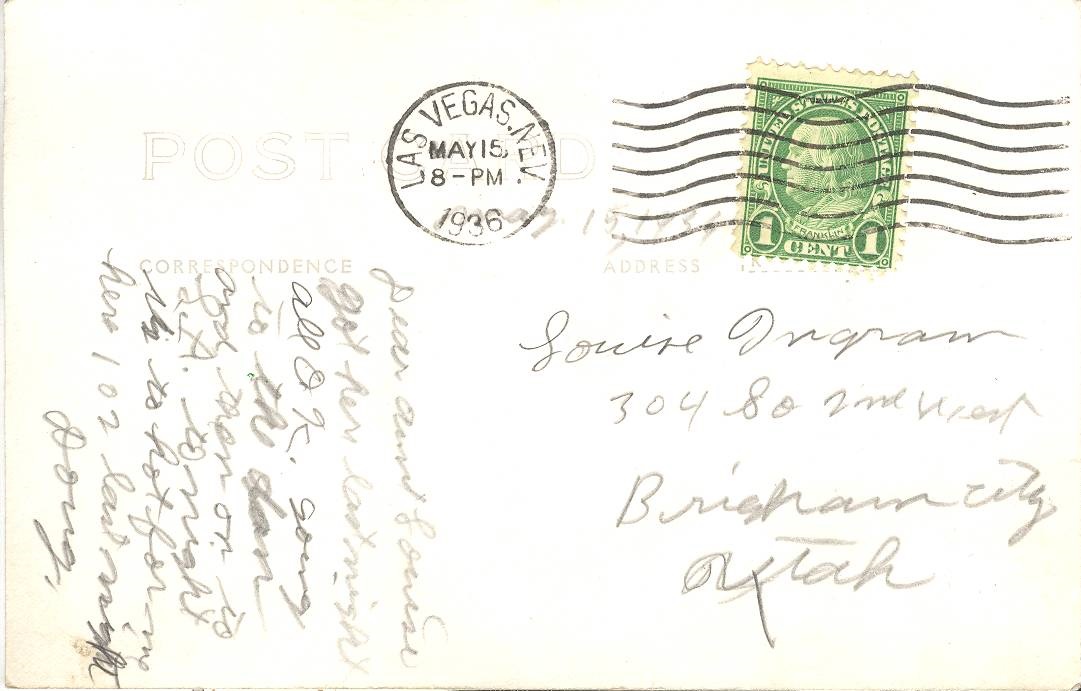 POST CARD
LAS VEGAS, NEV.
MAY 15
8-PM
1936
UNITED STATES POSTAGE
FRANKLIN
1 CENT 1
May 15, 193
CORRESPONDENCE
ADDRESS
Dear aunt Louise
got her last night
all O.K. going
to the dam
and then on to
L.A. tonight
to hot for me
here 102 last night
Doug.
Louise Ingram
304 So 2nd West
Brigham City
Utah